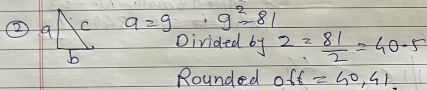 ② a c b a = 9 9² = 81
Divided by 2 = 81/2 = 40.5
Rounded off = 40, 41